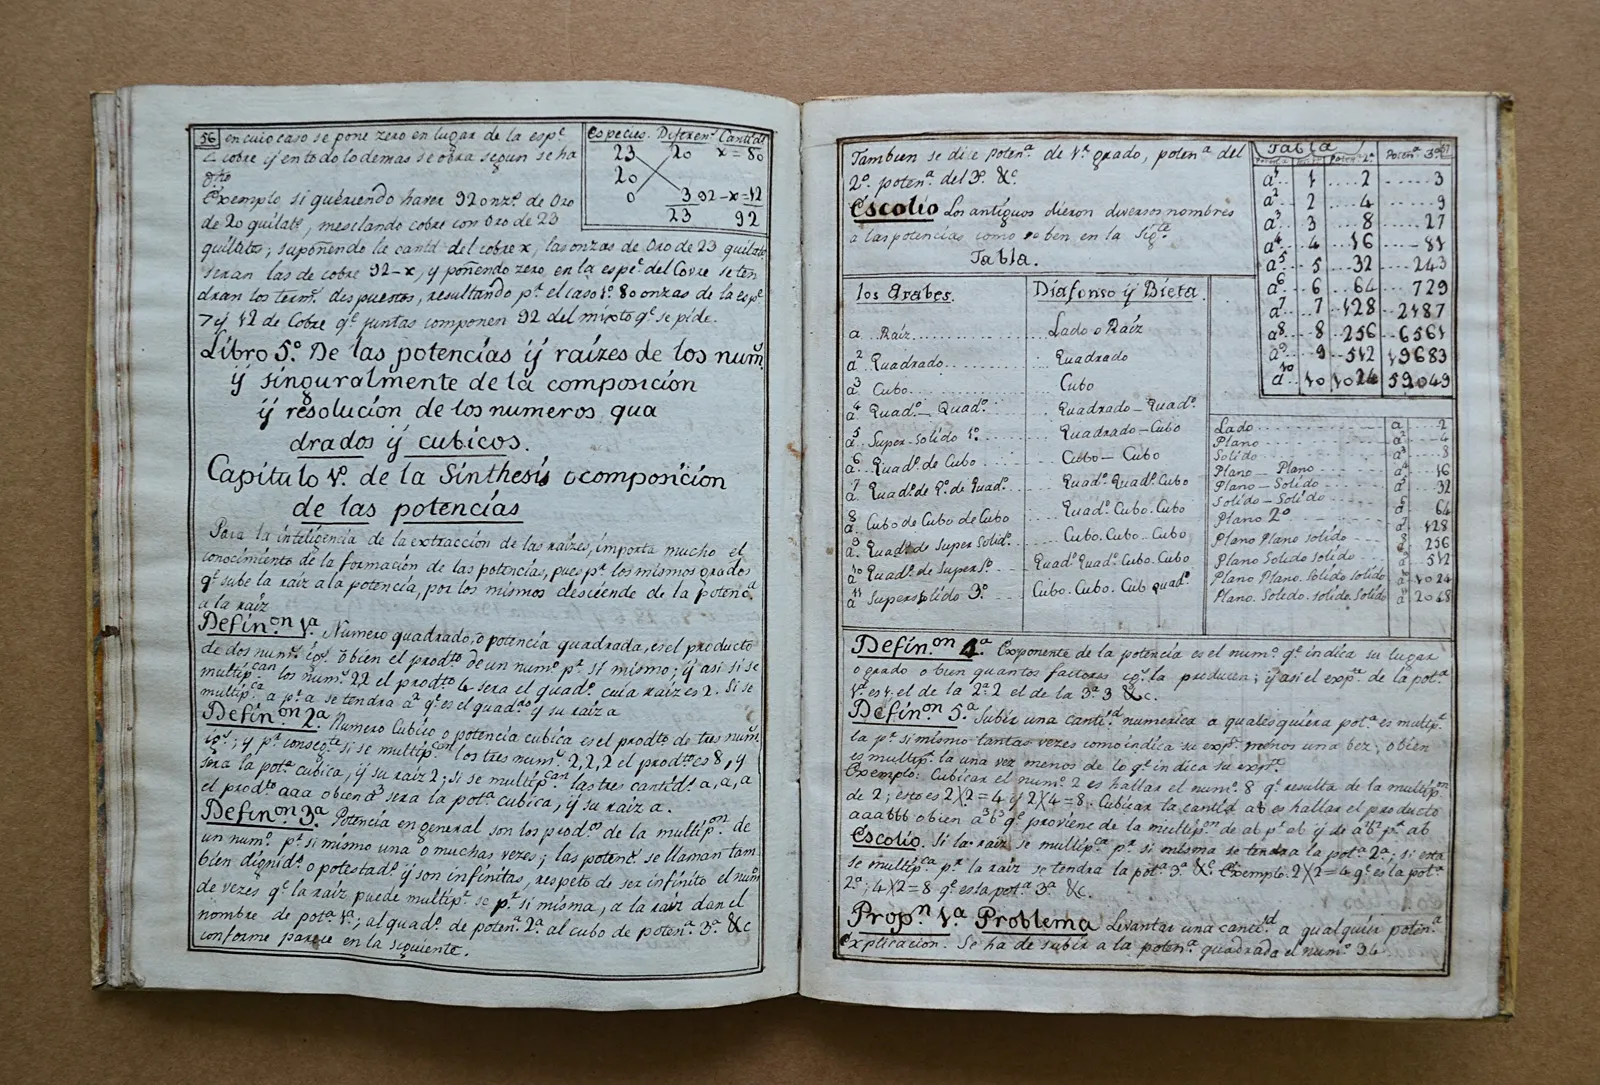 56 en cuio caso se pone zero en lugar de la espe
cobre ÿ en todo lo demas se obra segun se ha
dho
Exemplo si queriendo haver 92 onz.s de Oro
de 20 quilat.s, mesclando cobre con oro de 23
quilates; suponiendo la cant.d del cobre x, las onzas de Oro de 23 quilats
seran las de cobre 92-x, y poñendo zero, en la espe.e del Covre se ten
dran los term.s dispuestos, resultando p.r el caso 1º 80 onzas de la espe
7 y 12 de Cobre q.e juntas componen 92 del mixto q.e se pide.
Especies. Diferen.s Cantid.s
23 20 x=80
20
0 3 92-x=12
23 92
Libro 5º De las potencias ÿ raizes de los num.s
ÿ singuralmente de la composicion
ÿ resolucion de los numeros qua
drados ÿ cubicos.
Capitulo 1º de la Sinthesis o composicion
de las potencias
Para la inteligencia de la extraccion de las raizes, importa mucho el
conocimiento de la formacion de las potencias, pues p.r los mismos grados
q.e sube la raiz a la potencia, por los mismos desciende de la poten.a
a la raiz
Defin.on 1ª Numero quadrado, o potencia quadrada, es el producto
de dos num.s ig.s o bien el prod.to de un num.o p.r si mismo; ÿ asi si se
multip.can los num.s 2 2 el prod.to 4 sera el quad.o cuia raiz es 2. Si se
multip.ca a p.r a se tendra a² q.e es el quad.do ÿ su raiz a
Defin.on 2ª Numero Cubico o potencia cubica es el prod.to de tres num.s
ig.s; y p.r conseg.te si se multip.can los tres num.s 2,2,2 el prod.to es 8, y
sera la pot.a cubica, ÿ su raiz 2; si se multip.can las tres cantid.s a, a, a
el prod.to aaa o bien a³ sera la pot.a cubica, ÿ su raiz a.
Defin.on 3ª Potencia en general son los prod.os de la multip.on de
un num.o p.r si mismo una o muchas vezes; las potenc.s se llaman tam
bien dignid.s o potestad.s ÿ son infinitas, respeto de ser infinito el num.o
de vezes q.e la raiz puede multip.se p.r si misma, a la raiz dan el
nombre de pot.a 1ª; al quad.o de poten.a 2ª al cubo de poten.a 3ª &c
conforme parece en la siguiente.
Tambien se dice poten.a de 1º grado, poten.a del
2º poten.a del 3º &c.
Escolio Los antiguos dieron diversos nombres
a las potencias como se ben en la sig.te
Tabla.
Tabla
Poten.a 2ª Poten.a 3ª
a¹ 1 2 3
a² 2 4 9
a³ 3 8 27
a⁴ 4 16 81
a⁵ 5 32 243
a⁶ 6 64 729
a⁷ 7 128 2187
a⁸ 8 256 6561
a⁹ 9 512 19683
a¹⁰ 10 1024 59049
los Arabes. Diafonso ÿ Bieta.
a Raiz Lado o Raiz Lado a 2
a² Quadrado Quadrado Plano a² 4
a³ Cubo Cubo Solido a³ 8
a⁴ Quad.o - Quad.o Quadrado - Quad.o Plano - Plano a⁴ 16
a⁵ Super-solido 1º Quadrado - Cubo Plano - Solido 32
a⁶ Quad.o de Cubo Cubo - Cubo Solido - Solido a⁶ 64
a⁷ Quad.o de Q.o de Quad.o Quad.o Quad.o Cubo Plano 2º 128
a⁸ Cubo de Cubo de Cubo Quad.o Cubo. Cubo Plano Plano solido 256
a⁹ Quad.o de Super Solid.o Cubo. Cubo. Cubo Plano Solido Solido 512
a¹⁰ Quad.o de Supers.o Quad.o Quad.o Cubo. Cubo Plano Plano. Solido solido 1024
a¹¹ Supersolido 3º Cubo. Cubo. Cub quad.o Plano. Soledo. solido. Solido 2048
Defin.on 4ª Exponente de la potencia es el num.o q.e indica su lugar
o grado o bien quantos factores ig.s la producen; ÿ asi el exp.te de la pot.a
1ª es 1; el de la 2ª 2 el de la 3ª 3 &c.
Defin.on 5ª Subir una canti.d numerica a qualesquiera pot.a es multip.r
la p.r si mismo tantas vezes como indica su exp.te menos una bez; o bien
es multip.r la una vez menos de lo q.e indica su exp.te
Exemplo: Cubicar el num.o 2 es hallar el num.o 8 q.e resulta de la multip.on
de 2; esto es 2X2=4 ÿ 2X4=8. Cubicar la cantid ab es hallar el producto
aaabbb o bien a³b³ q.e proviene de la multip.on de ab p.r ab ÿ de a²b² p.r ab
Escolio. Si la raiz se multip.ca p.r si misma se tendra la pot.a 2ª; si esta
se multip.ca p.r la raiz se tendra la pot.a 3ª &c. Exemplo. 2X2=4 q.e es la pot.a
2ª; 4X2=8 q.e es la pot.a 3ª &c.
Prop.n 1ª Problema Levantar una cant.d a qualquier poten.a
Explicacion. Se ha de subir a la poten.a quadrada el num.o 34